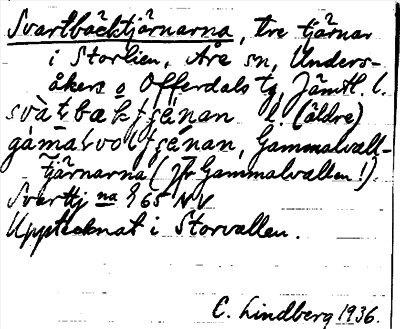 Svartbäcktjärnarna, tre tjärnar
i Storlien, Åre sn, Unders-
åkers o Offerdals tg, Jämtl. l.
svàt̀bækʃɟæ̀nan l. (äldre)
gàmalvolʃɟæ̀nan, Gammalvall-
tjärnarna (jfr Gammalvallen!)
Svarttj na § 65 NV
Upptecknat i Storvallen.
C. Lindberg 1936.